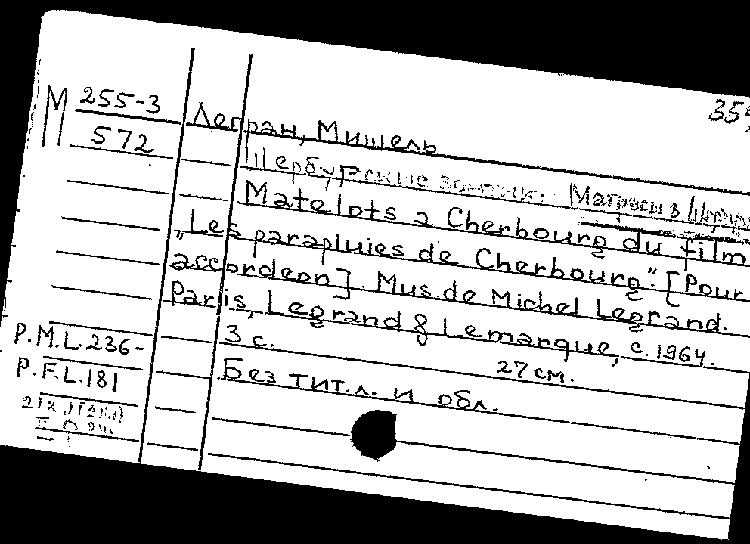 М 255-3
572
Легран, Мишель
Шербургские зонтики. Матросы в
Matelots a Cherbourg du film
„Les parapluies de Cherbourg". [Pour
accordeon]. Mus. de Michel Legrand.
Paris, Legrand & Lemarque, c. 1964.
3 с. 27 см.
Без тит. л. и обл.
P.M.L.236-
P.F.L.181